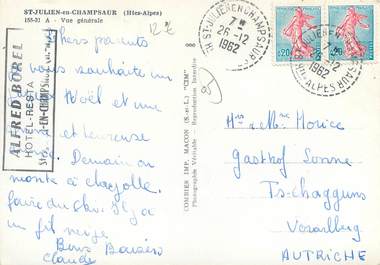 ST-JULIEN-en-CHAMPSAUR (Htes-Alpes)
155-21 A - Vue générale
12 €
Chers parents
Je vous souhaite un
Noël et une
heureuse
Demain on
monte à
faire du ski. Il y a
un fil neige
Bons Baisers
Claude
ALFRED BOREL
HOTEL-RESTA
St-J-EN-CHAMPSAUR
COMBIER IMP. MACON (S.-et-L.) "CIM"
Photographie Véritable - Reproduction Interdite
ST-JULIEN EN CHAMPSAUR
7 H
26-12
1962
0,20
1962
HTES-ALPES
Mrs et Mme Morice
Gasthof Sonne
Tschagguns
Vorarlberg
AUTRICHE